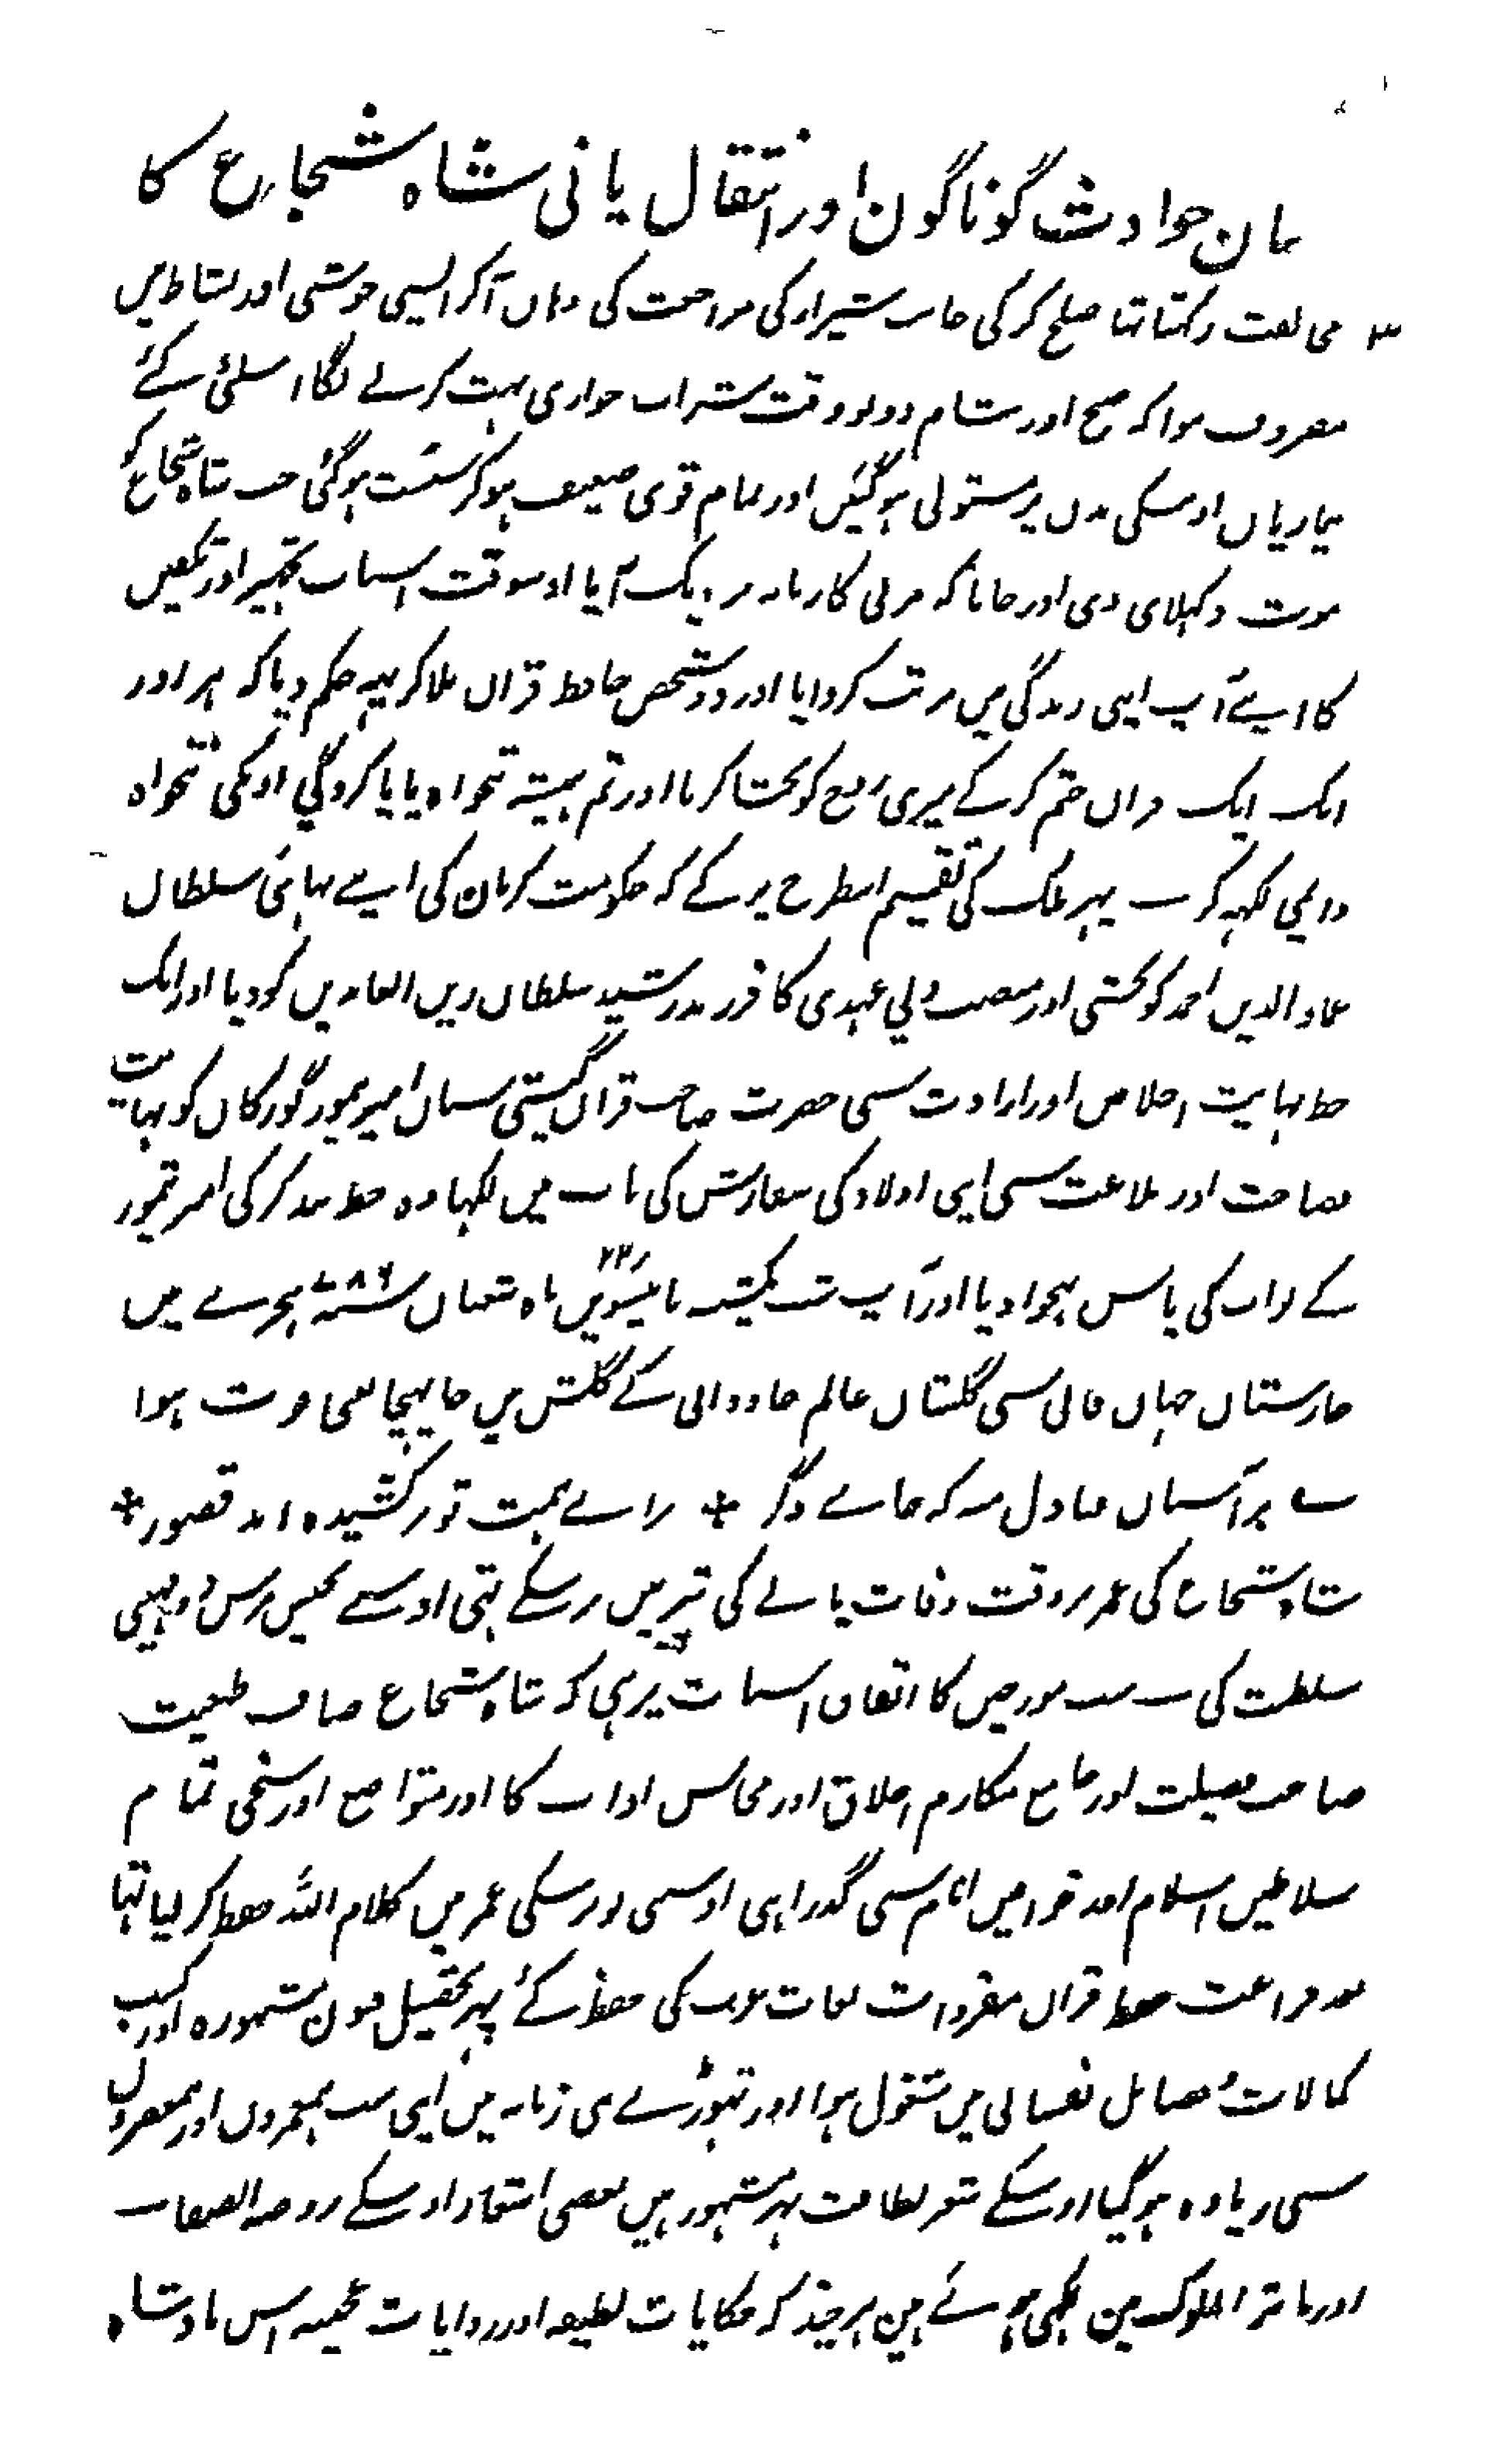 بیان حوادث گوناگون اور انتقال یانی شاہ شجاع کا
مخالفت رکہتا تہا صلح کر کی جانب شیراز کی مراجعت کی وہاں آکر ایسی خوشی اور نشاط میں
مصروف ہوا کہ صبح اور شام دونو وقت شراب خواری بہت کرنے لگا اسلئی کئے
بیماریاں اوسکی بدن پر مستولی ہو گئیں اور تمام قوی ضعیف ہو کر سست ہو گئی جب شاہ شجاع کو
موت دکہلای دی اور جانا کہ مرنی کا زمانہ نزدیک آیا اوسوقت اسباب تجہیز اور تکفین
کا اپنے آپ اپنی زندگی میں مرتب کروایا اور دو شخص حافظ قران بلا کر یہہ حکم دیا کہ ہر روز
ایک ایک قران ختم کر کے میری روح کو بخشا کرنا اور تم ہمیشہ تنخواہ پایا کروگی اونکی تنخواہ
دائمی لکہہ کر پہر ملک کی تقسیم اسطرح پر کے کہ حکومت کرمان کی اپنے بہائی سلطان
عماد الدین احمد کو بخشی اور منصب ولی عہدی کا فرزند رشید سلطان زین العابدین کو دیا اور ایک
خط نہایت اخلاص اور ارادت سی حضرت صاحب قران گیتی ستان امیر تیمور گورکان کو نہایت
فصاحت اور بلاغت سی اپنی اولاد کی سفارش کی باب میں لکہا وہ خط بند کر کی امیر تیمور
کے نواب کی پاس بہجوا دیا اور آپ شب یکشنبہ بائیسویں ۲۲ ماہ شعبان سنہ ۷۸۶ ہجرے میں
خارستان جہان فانی سی گلستان عالم جاودانی کے گلشن میں جا پہنچا یعنی فوت ہوا
بر آسمان نہادل منہ کہ جاے دگر * براے ہمت تو برکشیدہ اند قصور *
شاہ شجاع کی عمر بروقت وفات پانے کی ترپن برسکے تہی اوسنے پچیس برس دو مہینی
سلطنت کی سب مورخین کا اتفاق اسبات پر ہی کہ شاہ شجاع صاف طبیعت
صاحب فضیلت اور جامع مکارم اخلاق اور محاسن اداب کا اور متواضع اور سخی تمام
سلاطین اسلام اور خواقین انام سی گذرا ہی اوسنی نو برسکی عمر میں کلام اللہ حفظ کر لیا تہا
بعد فراغت حفظ قران مفردات لغات عرب کی حفظ کئے پہر تحصیل فنون مشہورہ اور کسب
کمالات و فضائل نفسانی میں مشغول ہوا اور تہوڑے ہی زمانہ میں اپنی سب ہمعمروں اور ہمعصروں
سی زیادہ ہو گیا اوسکے شعر لطافت بہر مشہور ہیں بعضی اشعار اوسکے روضہ الصفا
اور ماثر الملوک مین لکہی ہوئے ہین ہر چند کہ حکایات لطیفہ اور روایات عجیبہ اس بادشاہ